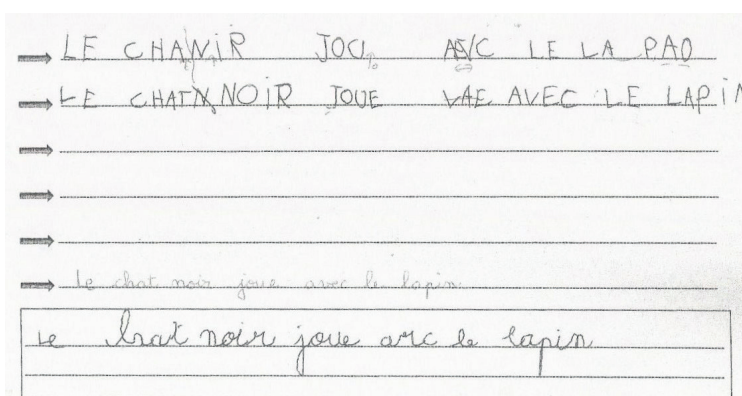 LE CHANIR JOU AVC LE LA PAO
LE CHAT NOIR JOUE VAE AVEC LE LAPIN
le chat noir joue avec le lapin
Le hat noir joue avc le lapin